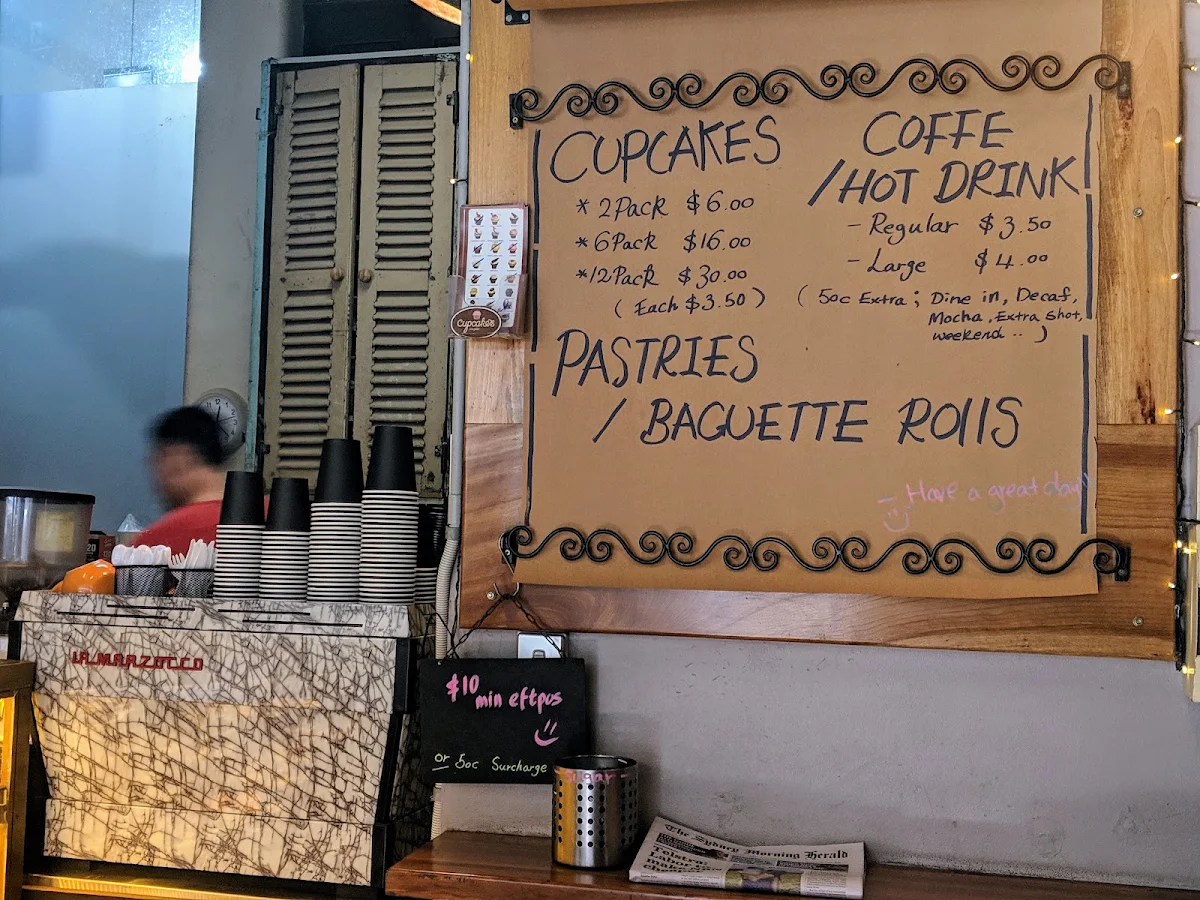 CUPCAKES
* 2Pack $6.00
* 6Pack $16.00
*12Pack $30.00
( Each $3.50 )
COFFE
/HOT DRINK
- Regular $3.50
- Large $4.00
( 50c Extra ; Dine in, Decaf,
Mocha, Extra shot,
weekend .. )
PASTRIES
/ BAGUETTE ROllS
- Have a great day!
Cupcakes
LA MARZOCCO
$10
min eftpos
or 50c Surcharge
sugar -
The Sydney Morning Herald
Telstra
Labor